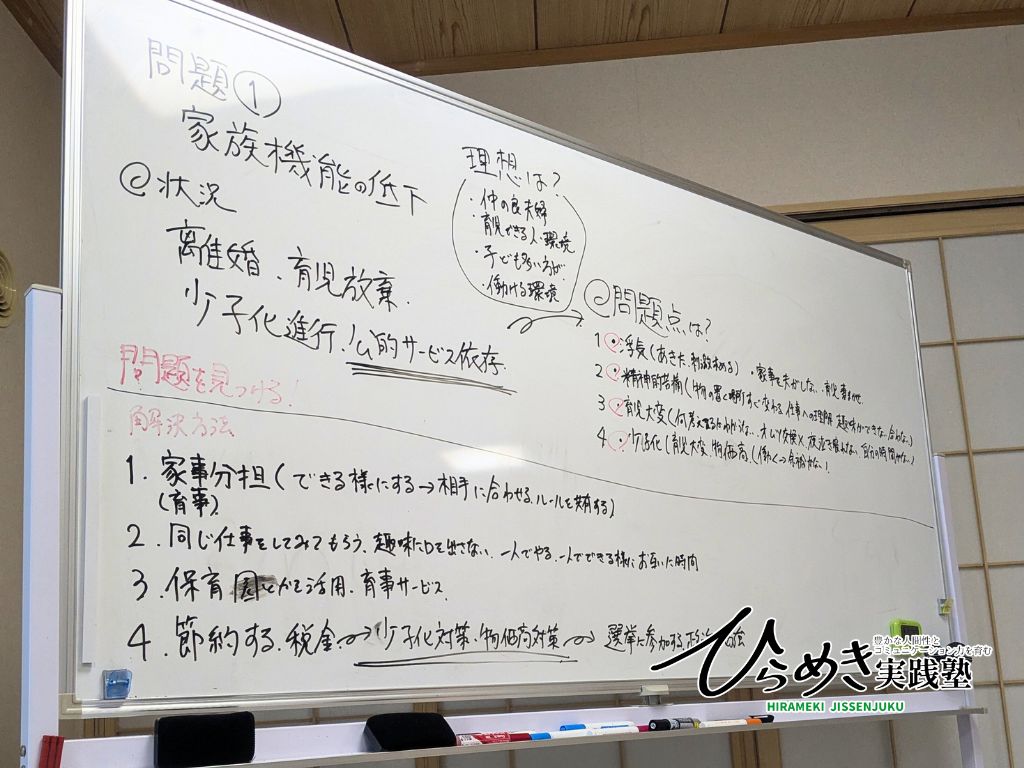 問題①
家族機能の低下
@状況
離婚、育児放棄、
少子化進行、公的サービス依存
理想は?
・仲の良夫婦
・育児できる人、環境
・子ども多い方が
・働ける環境
問題点は?
1 浮気(あきた、刺激求める)・家事を
2 精神的苦痛(物の置く場所すぐ変わる、仕事への理解
3 育児大変(オムツ交換×
4 少子化(育児大変、物価高、(働く→
問題を見つける!
解決方法
1. 家事分担(できる様にする→相手に合わせる、ルールを共有する)
(育事)
2. 同じ仕事をしてみてもらう、趣味に口を出さない、一人でやる、一人でできる様に お互いに時間
3. 保育園とかを活用、育事サービス
4. 節約する、税金→少子化対策、物価高対策→選挙に参加する、政治
ひらめき実践塾
豊かな人間性と
コミュニケーション力を育む
HIRAMEKI JISSENJUKU